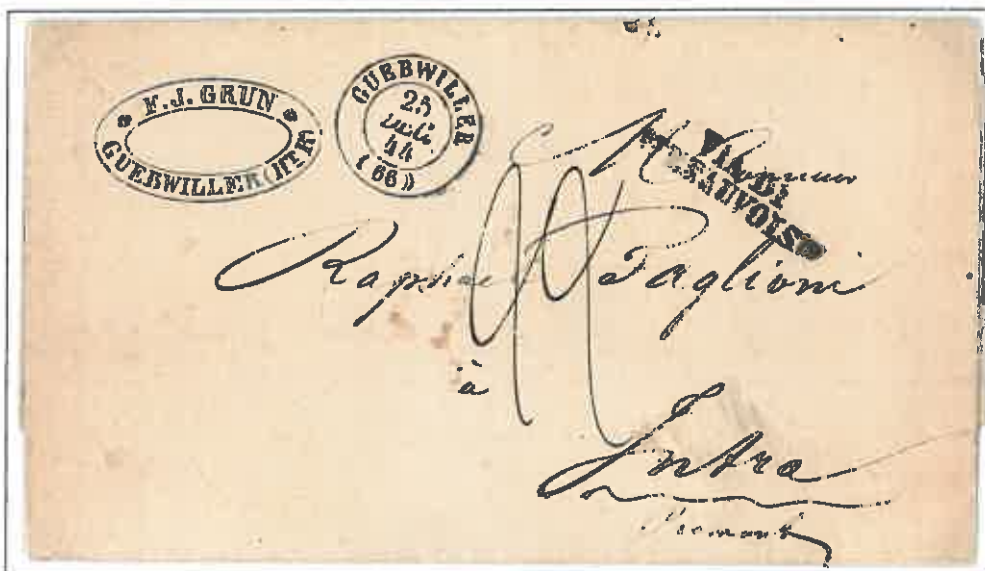 F. J. GRUN
GUEBWILLER (HT. R)
GUEBWILLER
25
JUIL.
44
(66)
VIA DI
PT. BEAUVOISIN
Monsieur
Raphael Paglioni
à
Intra
Piemont